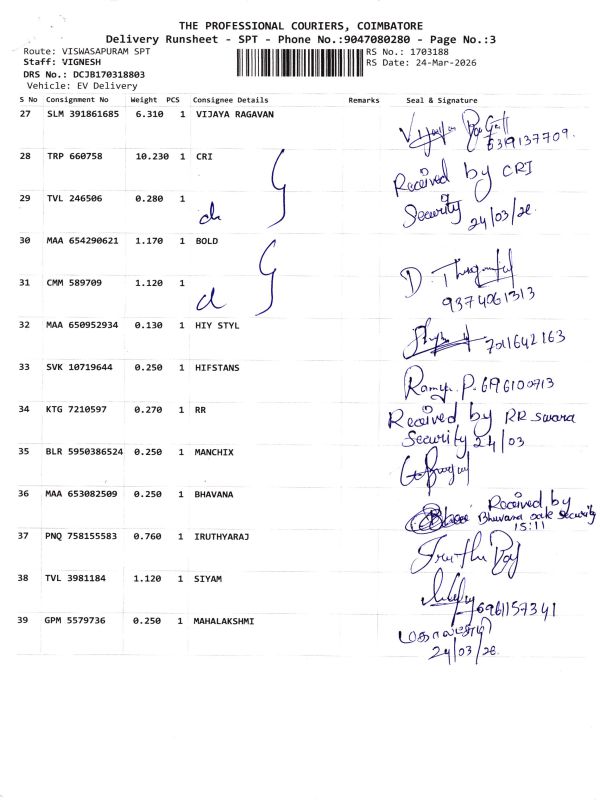 THE PROFESSIONAL COURIERS, COIMBATORE
Delivery Runsheet - SPT - Phone No.:9047080280 - Page No.:3
Route: VISWASAPURAM SPT
RS No.: 1703188
Staff: VIGNESH
RS Date: 24-Mar-2026
DRS No.: DCJB170318803
Vehicle: EV Delivery
S No Consignment No Weight PCS Consignee Details Remarks Seal & Signature
27 SLM 391861685 6.310 1 VIJAYA RAGAVAN
6319137709.
28 TRP 660758 10.230 1 CRI
Received by CRI
29 TVL 246506 0.280 1
Security 24/03/26.
30 MAA 654290621 1.170 1 BOLD
31 CMM 589709 1.120 1
9374061313
32 MAA 650952934 0.130 1 HIY STYL
7011642163
33 SVK 10719644 0.250 1 HIFSTANS
Ramya. P.
34 KTG 7210597 0.270 1 RR
Received by RR swara
Security 24/03
35 BLR 5950386524 0.250 1 MANCHIX
36 MAA 653082509 0.250 1 BHAVANA
Received by
Bhuvana oak security
15:11
37 PNQ 758155583 0.760 1 IRUTHYARAJ
Iruthu Raj
38 TVL 3981184 1.120 1 SIYAM
6961157341
39 GPM 5579736 0.250 1 MAHALAKSHMI
மகாலட்சுமி
24/03/26.